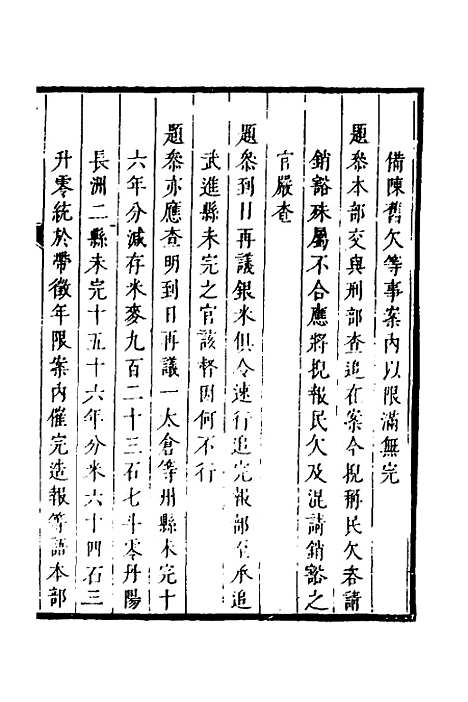 備陳舊欠等事案內以限滿無完
題叅本部交與刑部查追在案今捏稱民欠咨請
銷豁殊屬不合應將捏報民欠及混請銷豁之
官嚴查
題叅到日再議銀米俱令速行追完報部至承追
武進縣未完之官該督因何不行
題叅亦應查明到日再議一太倉等州縣未完十
六年分減存米麥九百二十三石七斗零丹陽
長洲二縣未完十五十六年分米六十四石三
升零統於帶徵年限案內催完造報等語本部